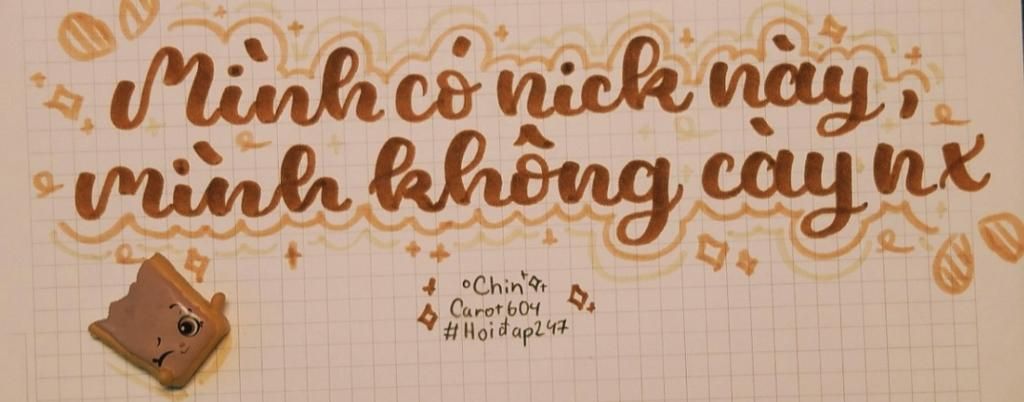 Mình có nick này,
mình không cày nx
Chin
Carot604
#Hoiđap247